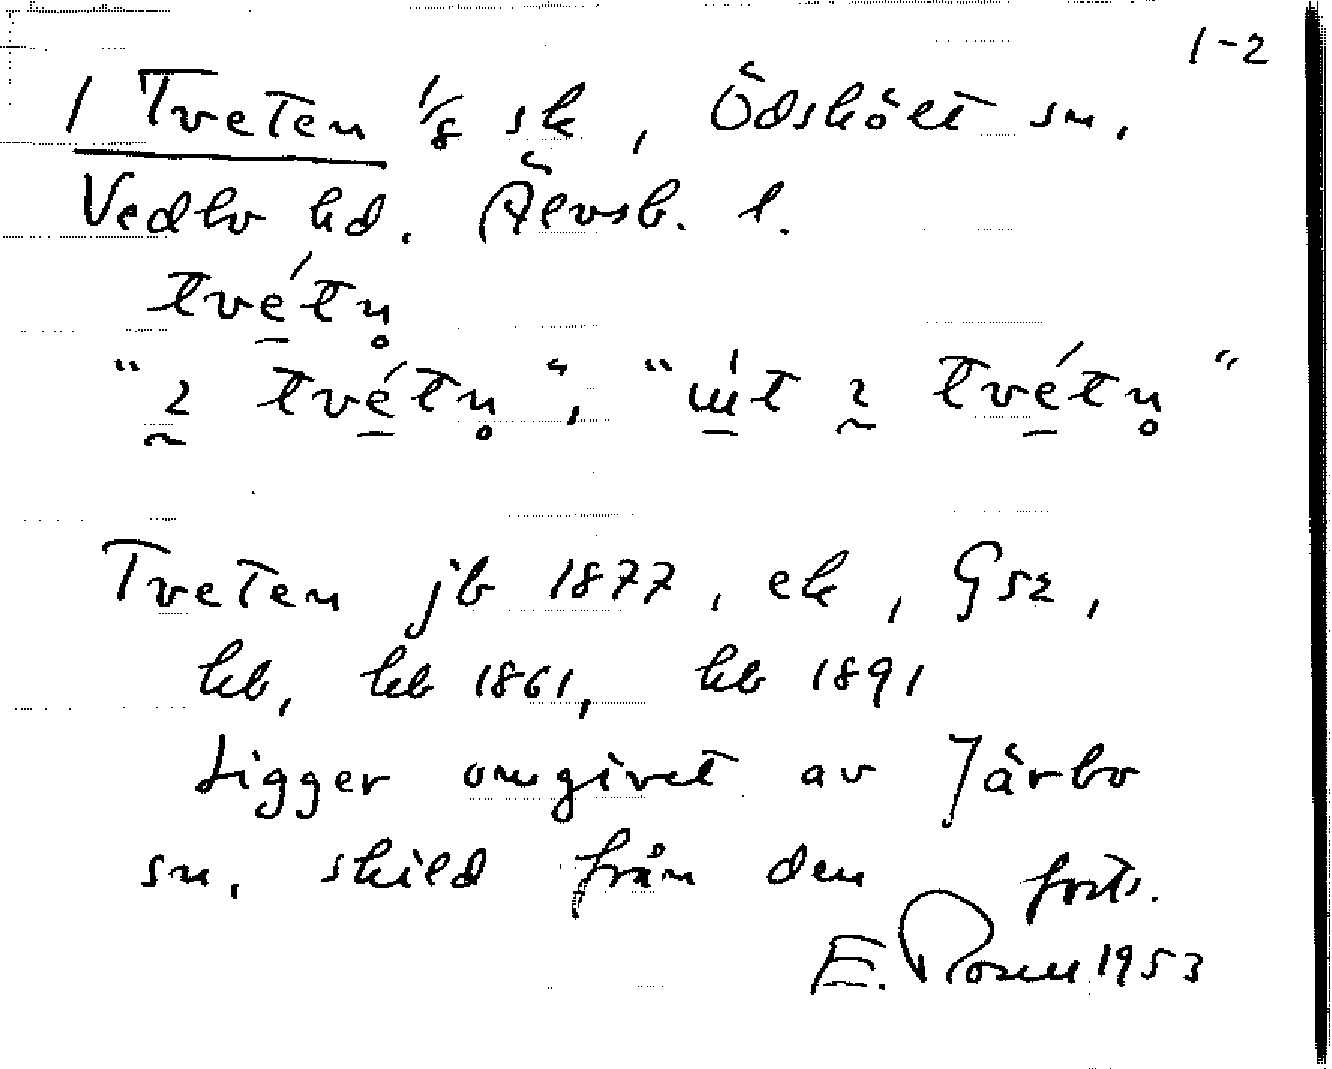 1-2
1 Tveten 1/8 sk, Ödskölt sn.
Vedbo hd. Älvsb. l.
tvétn̥
"ɩ tvétn̥", "ɯ́t ɩ tvétn̥"
Tveten jb 1877, ek, Gsz,
kb, kb 1861, kb 1891
Ligger omgivet av Järbo
sn. skild från den forts.
E. Rosen 1953